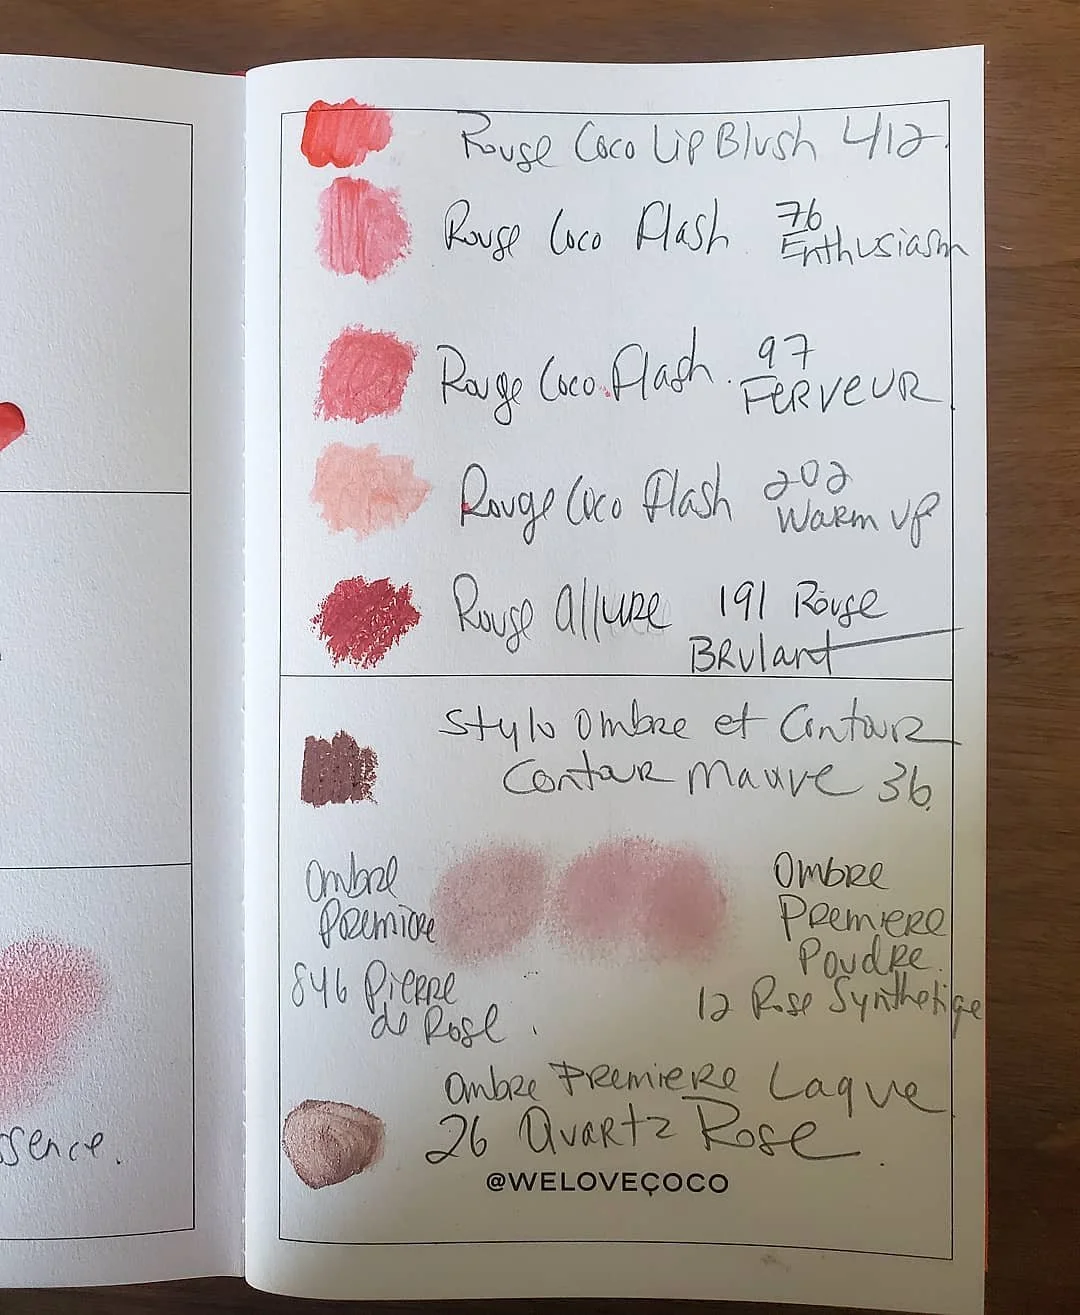 Rouge Coco Lip Blush 412.
Rouge Coco Flash 76
Enthusiasm
Rouge Coco Flash. 97
FERVEUR
Rouge Coco Flash 202
Warm up
Rouge Allure 191 Rouge
Brulant
Stylo Ombre et Contour
Contour Mauve 36.
Ombre
Premiere
846 Pierre
de Rose.
Ombre
Premiere
Poudre.
12 Rose Synthetique
Ombre Premiere Laque
26 Quartz Rose.
@WELOVEÇOCO
ssence.